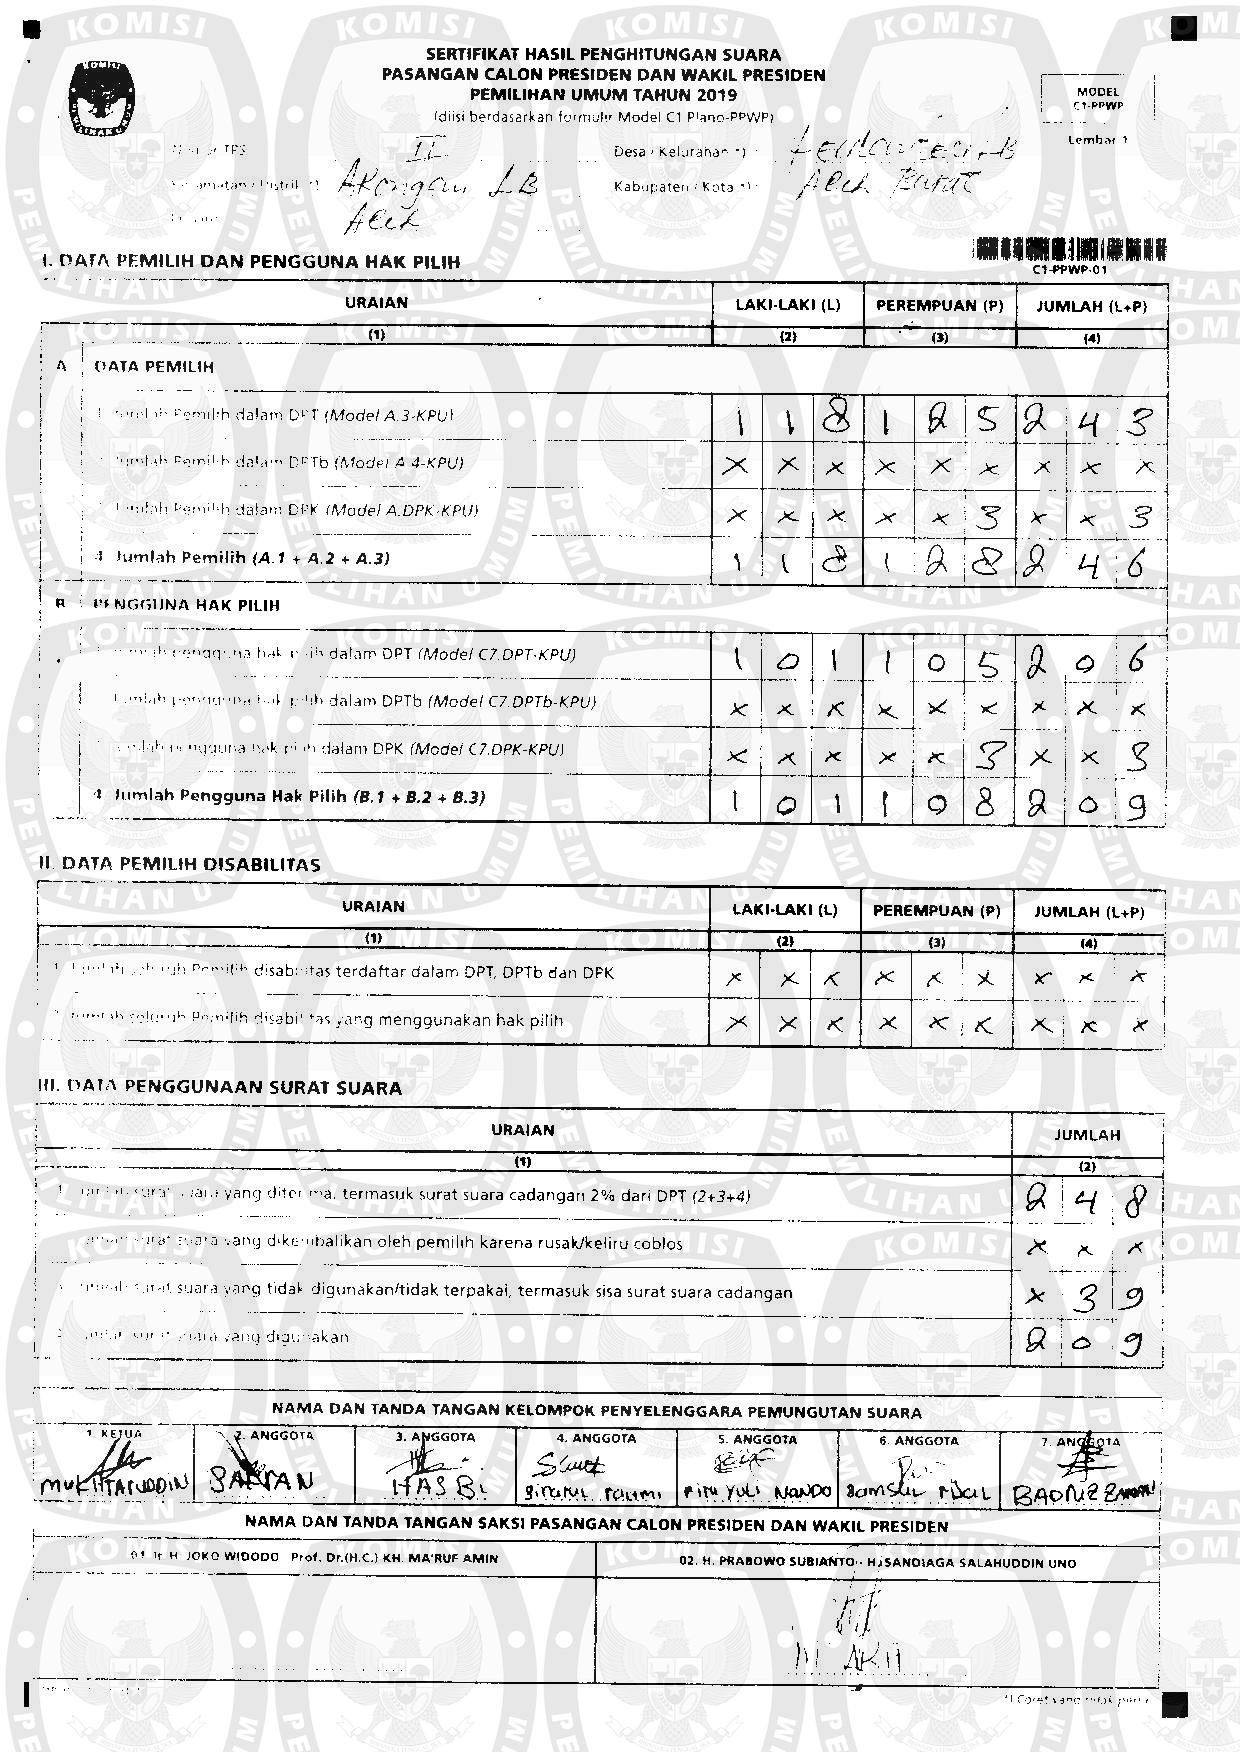 SERTIFIKAT HASIL PENGHITUNGAN SUARA
PASANGAN CALON PRESIDEN DAN WAKIL PRESIDEN
PEMILIHAN UMUM TAHUN 2019
(diisi berdasarkan formulir Model C1 Plano-PPWP)
MODEL
C1-PPWP
Lembar 1
TPS II Desa / Kelurahan *) :
Arongan LB Kabupaten / Kota *) : Aceh Barat
Aceh
C1-PPWP-01
I. DATA PEMILIH DAN PENGGUNA HAK PILIH
URAIAN LAKI-LAKI (L) PEREMPUAN (P) JUMLAH (L+P)
(1) (2) (3) (4)
A DATA PEMILIH
1. Jumlah Pemilih dalam DPT (Model A.3-KPU) 1 1 8 1 2 5 2 4 3
Jumlah Pemilih dalam DPTb (Model A.4-KPU) X X X X X X X X X
Jumlah Pemilih dalam DPK (Model A.DPK-KPU) X X X X X 3 X X 3
4 Jumlah Pemilih (A.1 + A.2 + A.3) 1 1 8 1 2 8 2 4 6
B PENGGUNA HAK PILIH
pengguna hak pilih dalam DPT (Model C7.DPT-KPU) 1 0 1 1 0 5 2 0 6
Jumlah pengguna hak pilih dalam DPTb (Model C7.DPTb-KPU) X X X X X X X X X
Jumlah pengguna hak pilih dalam DPK (Model C7.DPK-KPU) X X X X X 3 X X 3
4 Jumlah Pengguna Hak Pilih (B.1 + B.2 + B.3) 1 0 1 1 0 8 2 0 9
II. DATA PEMILIH DISABILITAS
URAIAN LAKI-LAKI (L) PEREMPUAN (P) JUMLAH (L+P)
(1) (2) (3) (4)
1. Jumlah seluruh Pemilih disabilitas terdaftar dalam DPT, DPTb dan DPK X X X X X X X X X
2. Jumlah seluruh Pemilih disabilitas yang menggunakan hak pilih X X X X X X X X X
III. DATA PENGGUNAAN SURAT SUARA
URAIAN JUMLAH
(1) (2)
surat suara yang diterima, termasuk surat suara cadangan 2% dari DPT (2+3+4) 2 4 8
surat suara yang dikembalikan oleh pemilih karena rusak/keliru coblos X X X
surat suara yang tidak digunakan/tidak terpakai, termasuk sisa surat suara cadangan X 3 9
surat suara yang digunakan 2 0 9
NAMA DAN TANDA TANGAN KELOMPOK PENYELENGGARA PEMUNGUTAN SUARA
1. KETUA 2. ANGGOTA 3. ANGGOTA 4. ANGGOTA 5. ANGGOTA 6. ANGGOTA 7. ANGGOTA
MUKHTARUDDIN HASBI
NAMA DAN TANDA TANGAN SAKSI PASANGAN CALON PRESIDEN DAN WAKIL PRESIDEN
01. Ir. H. JOKO WIDODO - Prof. Dr.(H.C.) KH. MA'RUF AMIN 02. H. PRABOWO SUBIANTO - H. SANDIAGA SALAHUDDIN UNO
*) Coret yang tidak perlu